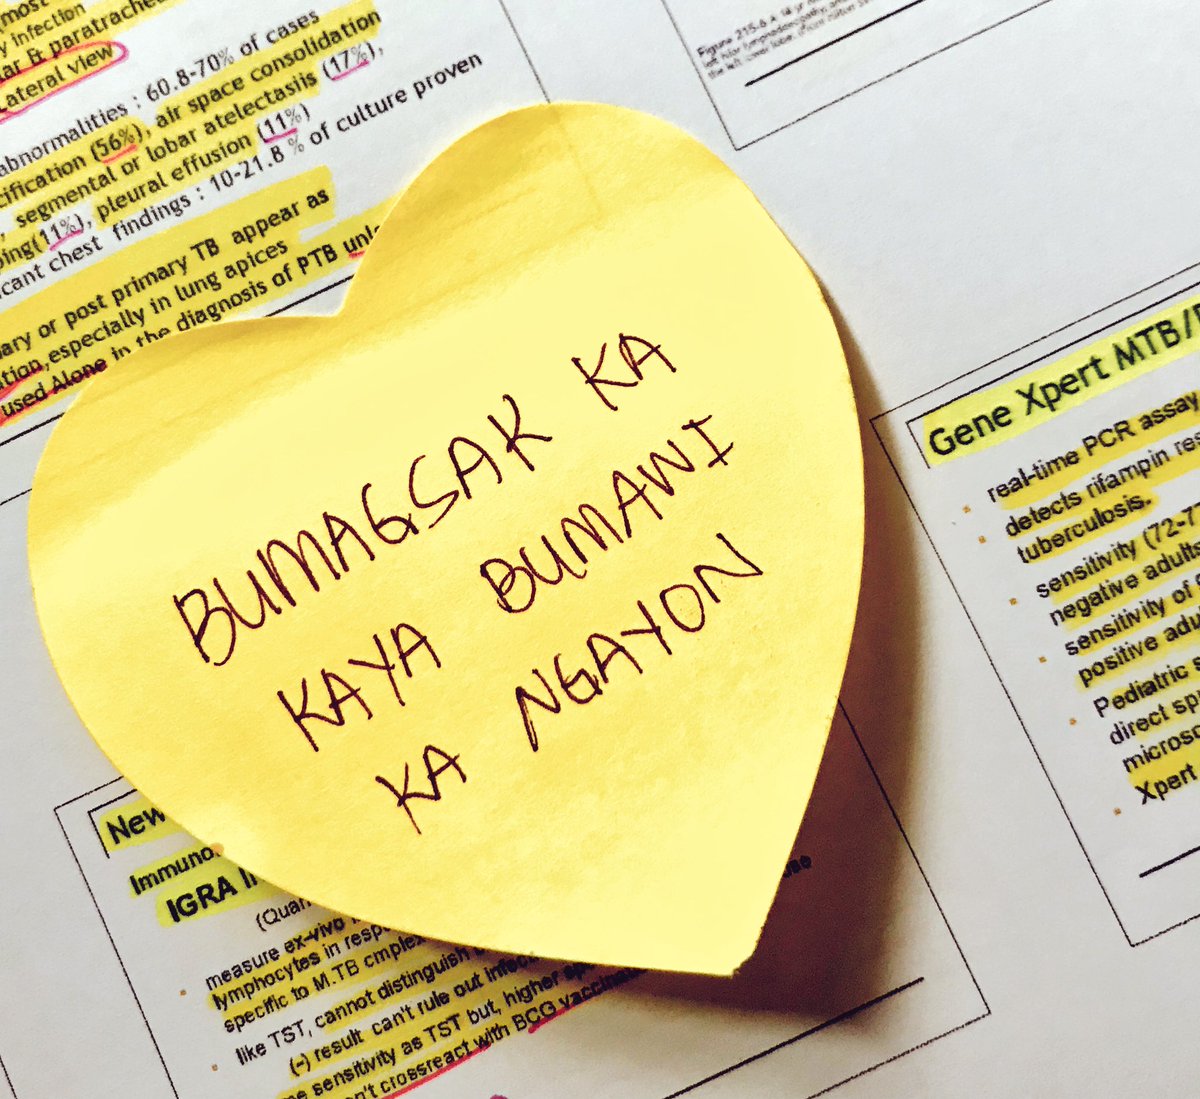 infection
ar & paratrache
Lateral view
abnormalities : 60.8-70% of cases
cification (56%), air space consolidation
segmental or lobar atelectasiis (17%),
ping(11%), pleural effusion (11%)
icant chest findings : 10-21.8 % of culture proven
ary or post primary TB appear as
ation,especially in lung apices
used Alone in the diagnosis of PTB unl
BUMAGSAK KA
KAYA BUMAWI
KA NGAYON
Gene Xpert MTB/
real-time PCR assay
detects rifampin res
tuberculosis.
sensitivity (72-7
negative adults
sensitivity of
positive adu
Pediatric s
direct sp
microsc
Xpert
New
Immuno
IGRA
(Quan
measure ex-vivo
lymphocytes in resp
specific to M.TB cmplex
like TST, cannot distinguish
(-) result can't rule out infec
me sensitivity as TST but, higher
n't crossreact with BCG vaccin